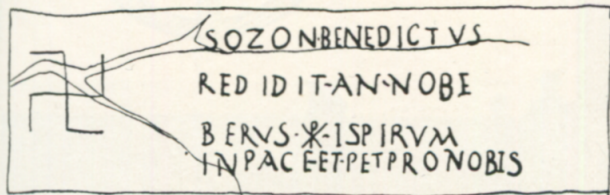 SOZON·BENEDICTVS
REDIDIT·AN·NOBE
BERVS·☧·ISPIRVM
INPACE·ET·PETPRONOBIS